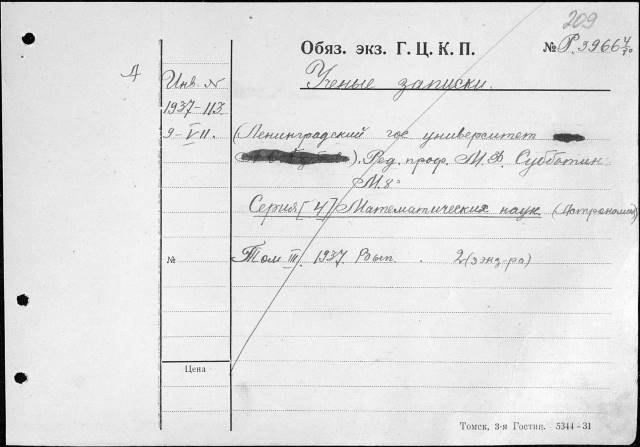 209
Обяз. экз. Г. Ц. К. П. № Р. 3966
Ученые записки.
Инв. №
1937-113
9-VII.
(Ленинградский гос университет
). Ред. проф. М. Ф. Субботин
М. 8°
Серия [4] Математических наук (Астрономия)
№ Том III. 1937. 2 (экз-ра)
Цена
Томск, 3-я Гостип. 5344-31